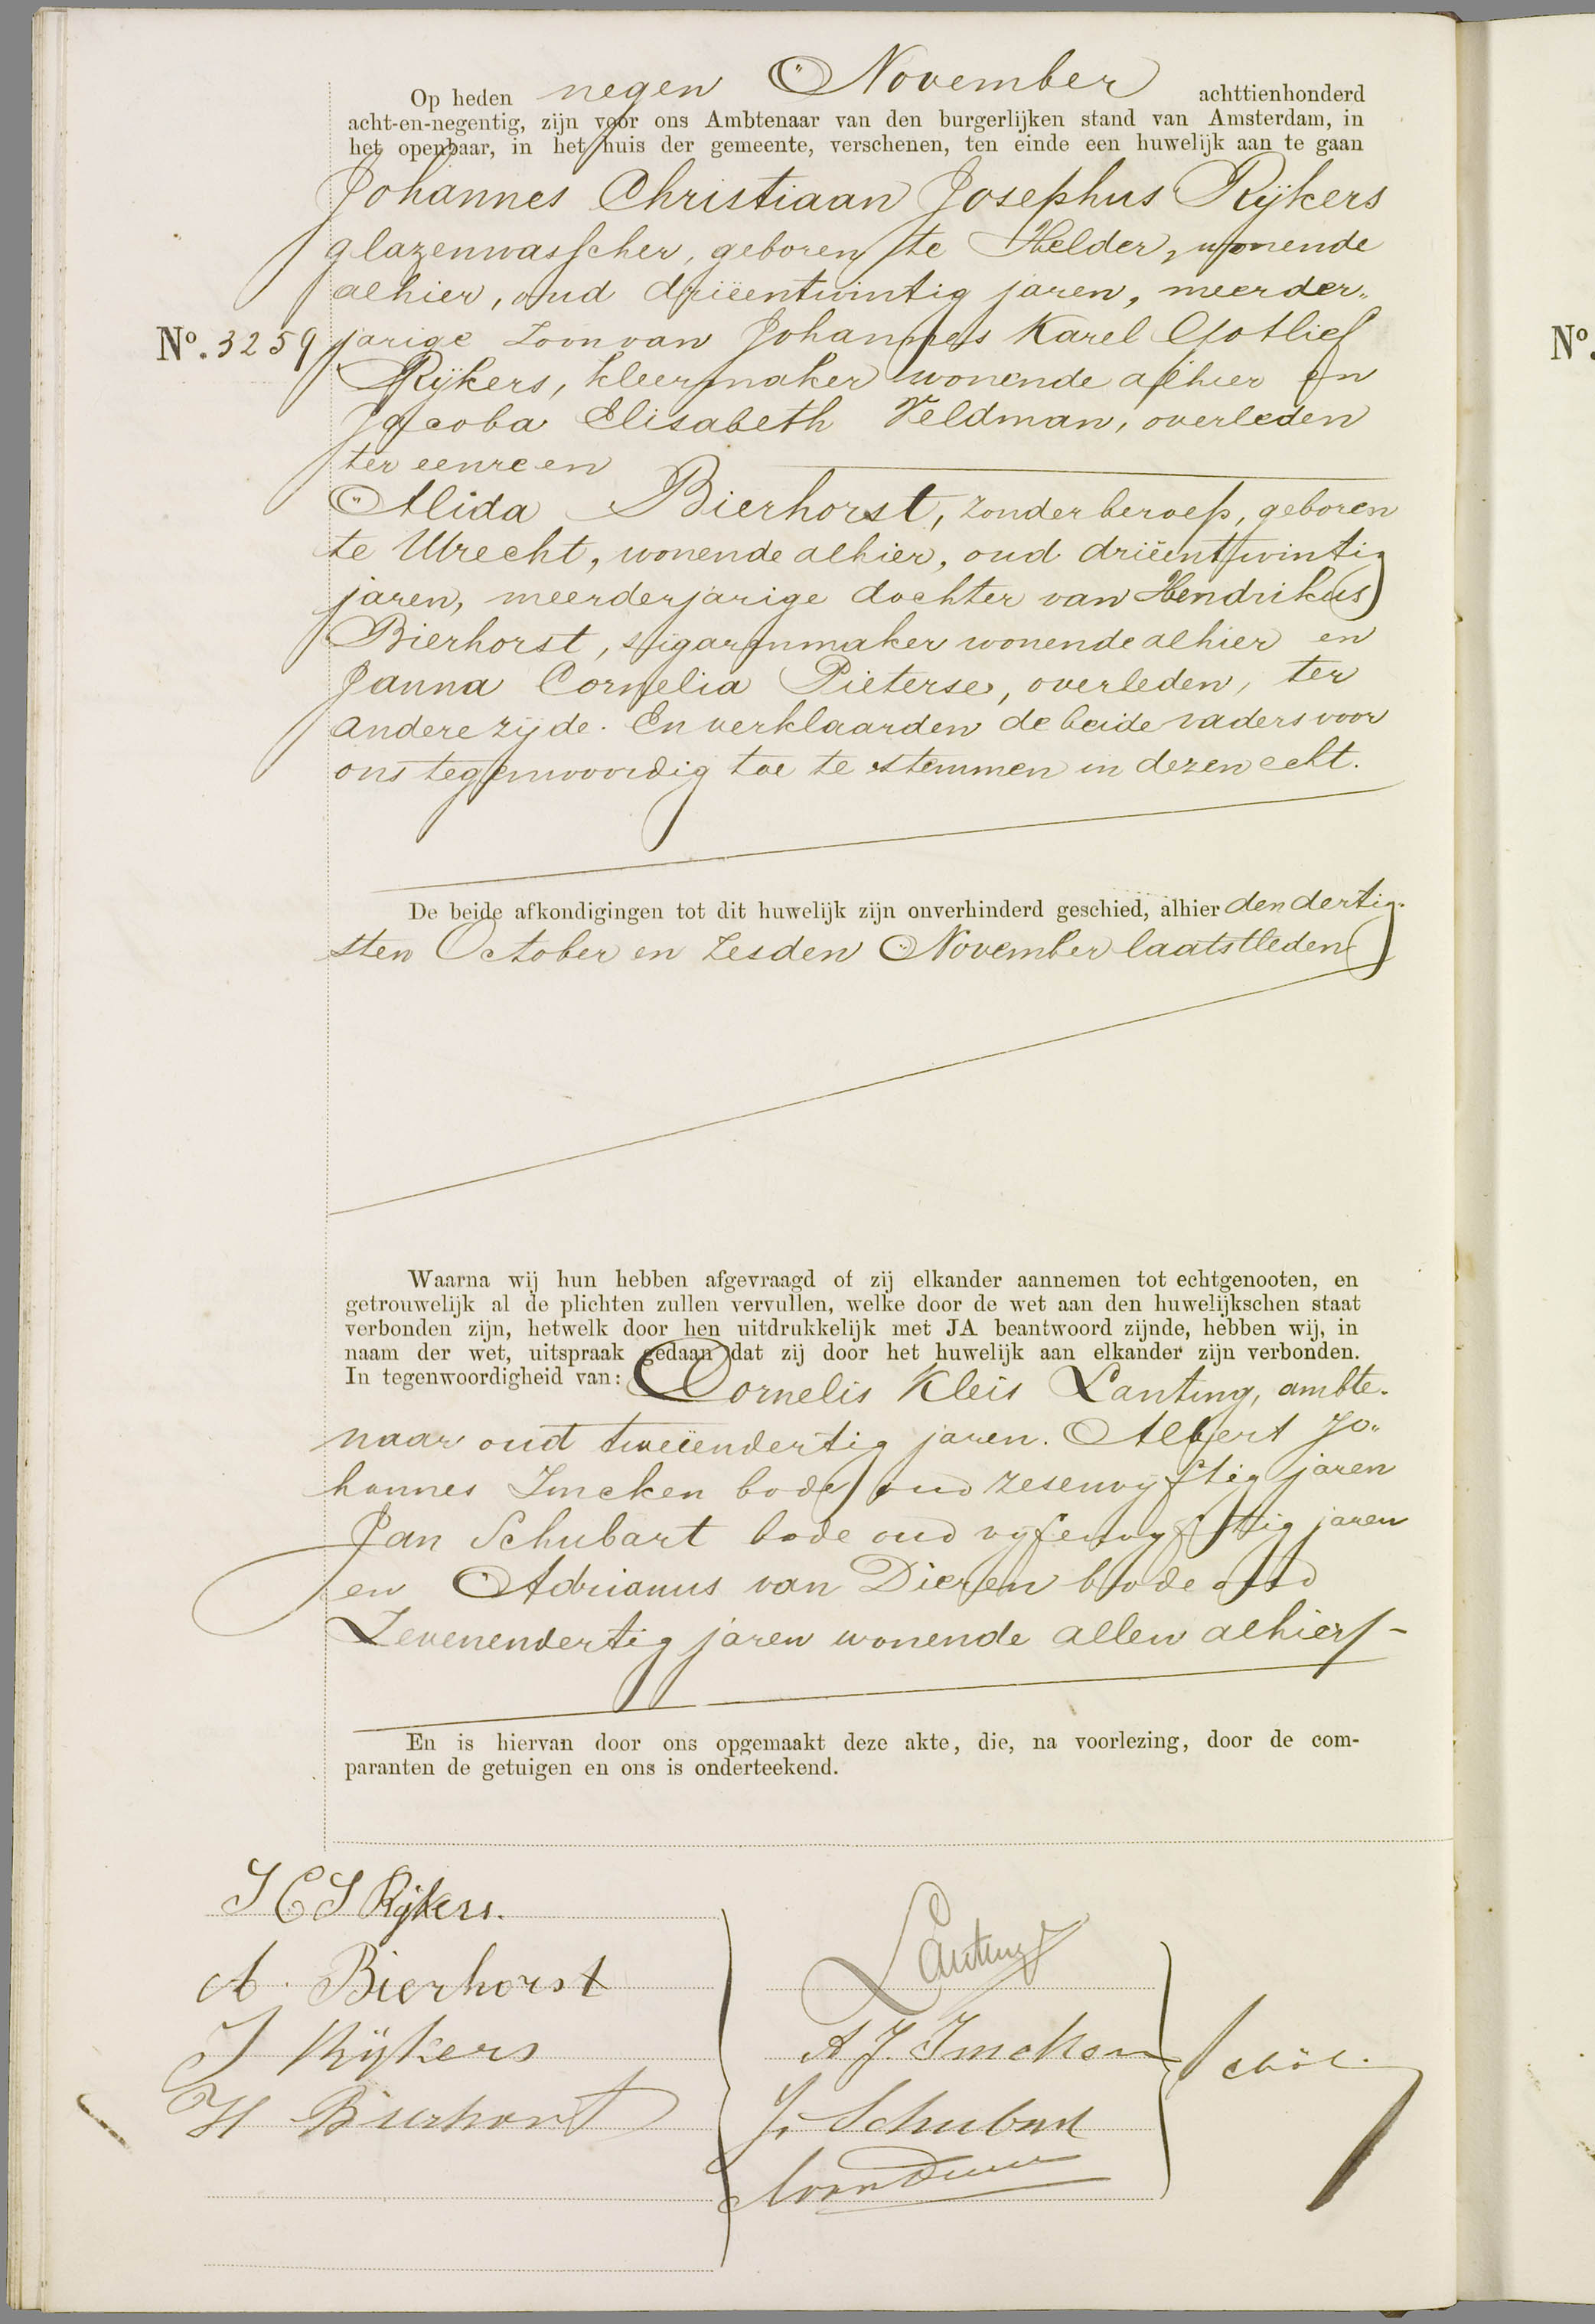 Op heden negen November achttienhonderd
acht-en-negentig, zijn voor ons Ambtenaar van den burgerlijken stand van Amsterdam, in
het openbaar, in het huis der gemeente, verschenen, ten einde een huwelijk aan te gaan
Johannes Christiaan Josephus Rijkers
glazenwasscher, geboren te Helder, wonende
alhier, oud drieëntwintig jaren, meerder„
No. 3259 jarige zoon van Johannes Karel Gotlief
Rijkers, kleermaker wonende alhier en
Jacoba Elisabeth Veldman, overleden
ter eenre en
Alida Bierhorst, zonder beroep, geboren
te Utrecht, wonende alhier, oud drieëntwintig
jaren, meerderjarige dochter van Hendrikus
Bierhorst, sigarenmaker wonende alhier en
Janna Cornelia Pieterse, overleden, ter
andere zijde. En verklaarden de beide vaders voor
ons tegenwoordig toe te stemmen in dezen echt.
De beide afkondigingen tot dit huwelijk zijn onverhinderd geschied, alhier den dertig-
sten October en zesden November laatstleden
Waarna wij hun hebben afgevraagd of zij elkander aannemen tot echtgenooten, en
getrouwelijk al de plichten zullen vervullen, welke door de wet aan den huwelijkschen staat
verbonden zijn, hetwelk door hen uitdrukkelijk met JA beantwoord zijnde, hebben wij, in
naam der wet, uitspraak gedaan dat zij door het huwelijk aan elkander zijn verbonden.
In tegenwoordigheid van: Cornelis Kleis Lanting, ambte-
naar oud tweeëndertig jaren. Albert Jo„
hannes Imcken bode oud zesenvijftig jaren
Jan Schubart bode oud vijfenvijftig jaren
en Adrianus van Dieren bode oud
Zevenendertig jaren wonende allen alhier -
En is hiervan door ons opgemaakt deze akte, die, na voorlezing, door de com-
paranten de getuigen en ons is onderteekend.
J C J Rijkers.
A. Bierhorst
J Rijkers
H Bierhorst
Lanting
A J. Imcken
J. Schubart
No.